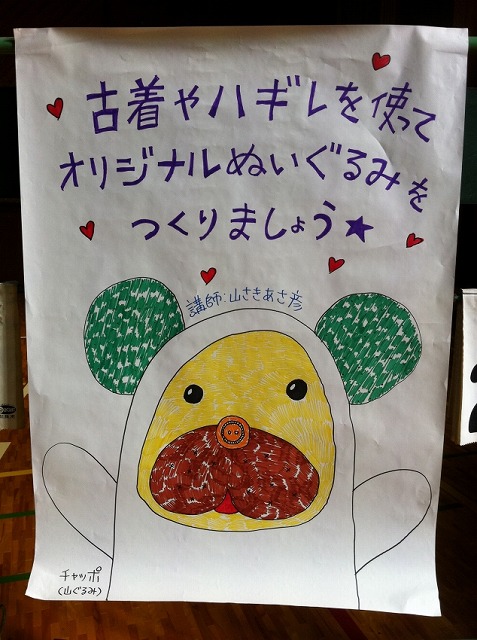 古着やハギレを使って
オリジナルぬいぐるみを
つくりましょう★
講師:山さきあさ彦
チャッポ
(山ぐるみ)